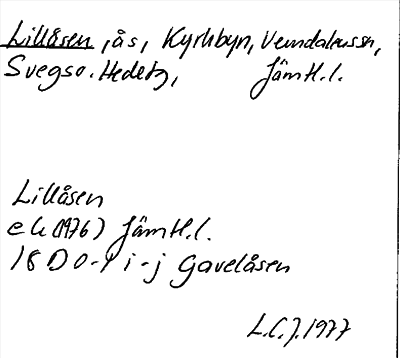 Lillåsen, ås, Kyrkbyn, Vemdalenssn,
Svegso. Hedetg, Jämtl.l.
Lillåsen
ek (1976) Jämtl.l.
18 D 0-1 i-j Gavelåsen
L.C.J. 1977